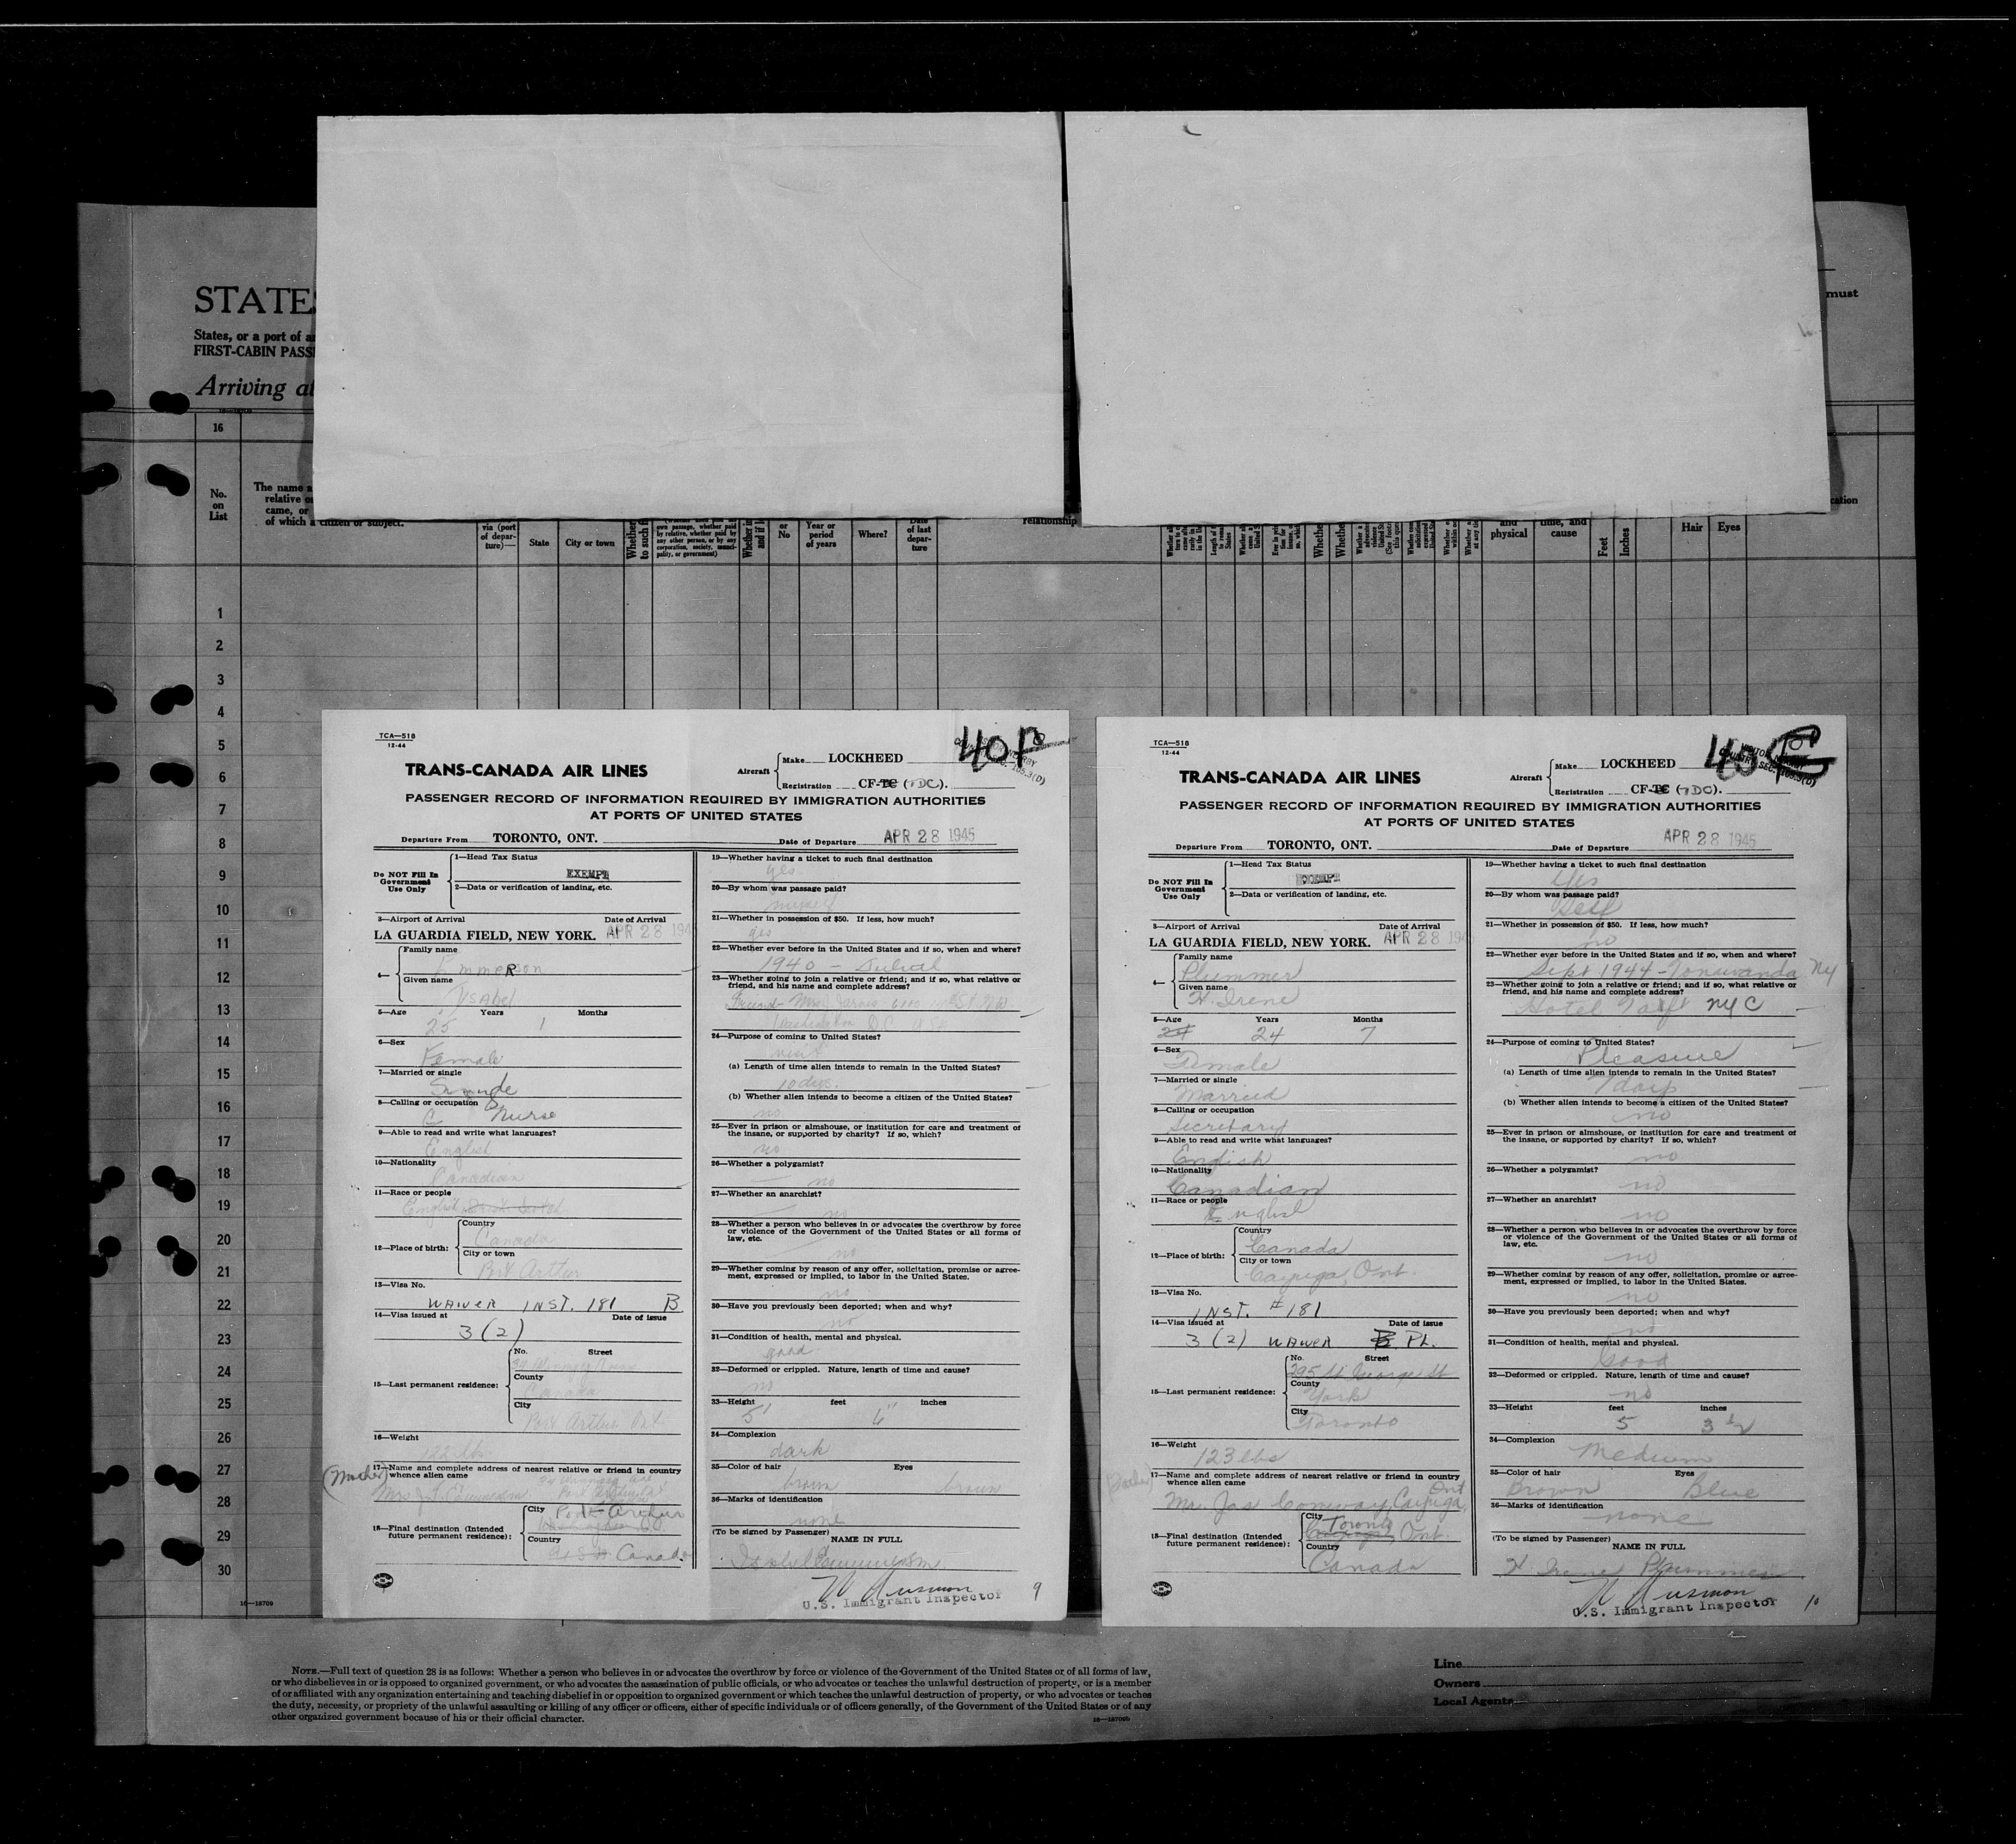 STATE
States, or a port of a
FIRST-CABIN PASS
Arriving at
must
16
No.
on
List
The name a
relative o
came, or
of which a citizen or subject.
via (port
of depar-
ture)—
State
City or town
Whether
to such f
own passage, whether paid
by relative, whether paid by
any other person, or by any
corporation, society, munici-
pality, or government)
or
No
Year or
period
of years
Where?
Date
of last
depar-
ture
relationship
and
physical
time, and
cause
Feet
Inches
Hair
Eyes
1
2
3
4
5
6
7
8
9
10
11
12
13
14
15
16
17
18
19
20
21
22
23
24
25
26
27
28
29
30
16—18709
TCA—518
12-44
TRANS-CANADA AIR LINES
Aircraft
Make LOCKHEED
Registration CF-TC (TDC).
PASSENGER RECORD OF INFORMATION REQUIRED BY IMMIGRATION AUTHORITIES
AT PORTS OF UNITED STATES
Departure From TORONTO, ONT. Date of Departure APR 28 1945
Do NOT Fill In
Government
Use Only
1—Head Tax Status
EXEMPT
2—Data or verification of landing, etc.
3—Airport of Arrival Date of Arrival
LA GUARDIA FIELD, NEW YORK. APR 28 194
4—
Family name
Emmerson
Given name
Ysabel
5—Age Years Months
25 1
6—Sex
Female
7—Married or single
Single
8—Calling or occupation
Nurse
9—Able to read and write what languages?
English
10—Nationality
Canadian
11—Race or people
English
12—Place of birth:
Country
Canada
City or town
Port Arthur
13—Visa No.
WAIVER INST. 181 B
14—Visa issued at Date of issue
3 (2)
15—Last permanent residence:
No. Street
County
Canada
City
Port Arthur Ont
16—Weight
122 lbs.
(Mother)
17—Name and complete address of nearest relative or friend in country
whence alien came
18—Final destination (Intended
future permanent residence):
City
Port Arthur
Country
USA Canada
19—Whether having a ticket to such final destination
yes
20—By whom was passage paid?
myself
21—Whether in possession of $50. If less, how much?
yes
22—Whether ever before in the United States and if so, when and where?
1940 - Duluth
23—Whether going to join a relative or friend; and if so, what relative or
friend, and his name and complete address?
Friend - Mrs. Jarvis
Washington D.C.
24—Purpose of coming to United States?
visit
(a) Length of time alien intends to remain in the United States?
10 days.
(b) Whether alien intends to become a citizen of the United States?
no
25—Ever in prison or almshouse, or institution for care and treatment of
the insane, or supported by charity? If so, which?
no
26—Whether a polygamist?
no
27—Whether an anarchist?
no
28—Whether a person who believes in or advocates the overthrow by force
or violence of the Government of the United States or all forms of
law, etc.
no
29—Whether coming by reason of any offer, solicitation, promise or agree-
ment, expressed or implied, to labor in the United States.
no
30—Have you previously been deported; when and why?
no
31—Condition of health, mental and physical.
good
32—Deformed or crippled. Nature, length of time and cause?
no
33—Height feet inches
5' 6"
34—Complexion
dark
35—Color of hair Eyes
brown brown
36—Marks of identification
none
(To be signed by Passenger) NAME IN FULL
Isabel Emmerson
U.S. Immigrant Inspector
9
TCA—518
12-44
TRANS-CANADA AIR LINES
Aircraft
Make LOCKHEED
Registration CF-TC (TDC).
PASSENGER RECORD OF INFORMATION REQUIRED BY IMMIGRATION AUTHORITIES
AT PORTS OF UNITED STATES
Departure From TORONTO, ONT. Date of Departure APR 28 1945
Do NOT Fill In
Government
Use Only
1—Head Tax Status
EXEMPT
2—Data or verification of landing, etc.
3—Airport of Arrival Date of Arrival
LA GUARDIA FIELD, NEW YORK. APR 28 194
4—
Family name
Plummer
Given name
H. Irene
5—Age Years Months
24 24 7
6—Sex
Female
7—Married or single
Married
8—Calling or occupation
Secretary
9—Able to read and write what languages?
English
10—Nationality
Canadian
11—Race or people
English
12—Place of birth:
Country
Canada
City or town
Cayuga, Ont.
13—Visa No.
INST. #181
14—Visa issued at Date of issue
3 (2) WAIVER B PL.
15—Last permanent residence:
No. Street
295 St. George St
County
York
City
Toronto
16—Weight
123 lbs
17—Name and complete address of nearest relative or friend in country
whence alien came
Mr. Jas Conway, Cayuga, Ont
18—Final destination (Intended
future permanent residence):
City
Toronto
Cayuga, Ont.
Country
Canada
19—Whether having a ticket to such final destination
Yes
20—By whom was passage paid?
Self
21—Whether in possession of $50. If less, how much?
no
22—Whether ever before in the United States and if so, when and where?
Sept 1944 - Tonawanda NY
23—Whether going to join a relative or friend; and if so, what relative or
friend, and his name and complete address?
Hotel Taft NYC
24—Purpose of coming to United States?
Pleasure
(a) Length of time alien intends to remain in the United States?
7 days
(b) Whether alien intends to become a citizen of the United States?
no
25—Ever in prison or almshouse, or institution for care and treatment of
the insane, or supported by charity? If so, which?
no
26—Whether a polygamist?
no
27—Whether an anarchist?
no
28—Whether a person who believes in or advocates the overthrow by force
or violence of the Government of the United States or all forms of
law, etc.
no
29—Whether coming by reason of any offer, solicitation, promise or agree-
ment, expressed or implied, to labor in the United States.
no
30—Have you previously been deported; when and why?
no
31—Condition of health, mental and physical.
Good
32—Deformed or crippled. Nature, length of time and cause?
no
33—Height feet inches
5 3 ½
34—Complexion
Medium
35—Color of hair Eyes
Brown Blue
36—Marks of identification
none
(To be signed by Passenger) NAME IN FULL
H. Irene Plummer
U.S. Immigrant Inspector
10
NOTE.—Full text of question 28 is as follows: Whether a person who believes in or advocates the overthrow by force or violence of the Government of the United States or of all forms of law,
or who disbelieves in or is opposed to organized government, or who advocates the assassination of public officials, or who advocates or teaches the unlawful destruction of property, or is a member
of or affiliated with any organization entertaining and teaching disbelief in or opposition to organized government or which teaches the unlawful destruction of property, or who advocates or teaches
the duty, necessity, or propriety of the unlawful assaulting or killing of any officer or officers, either of specific individuals or of officers generally, of the Government of the United States or of any
other organized government because of his or their official character.
16—18709b
Line
Owners
Local Agents